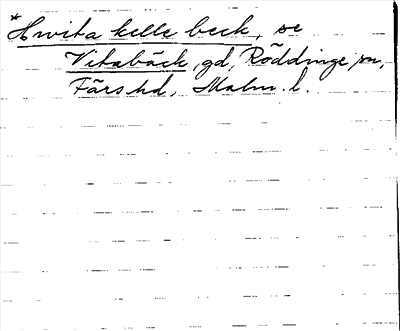 *Hwita kelle beck, se
Vitabäck, gd, Röddinge sn,
Färs hd, Malm. l.